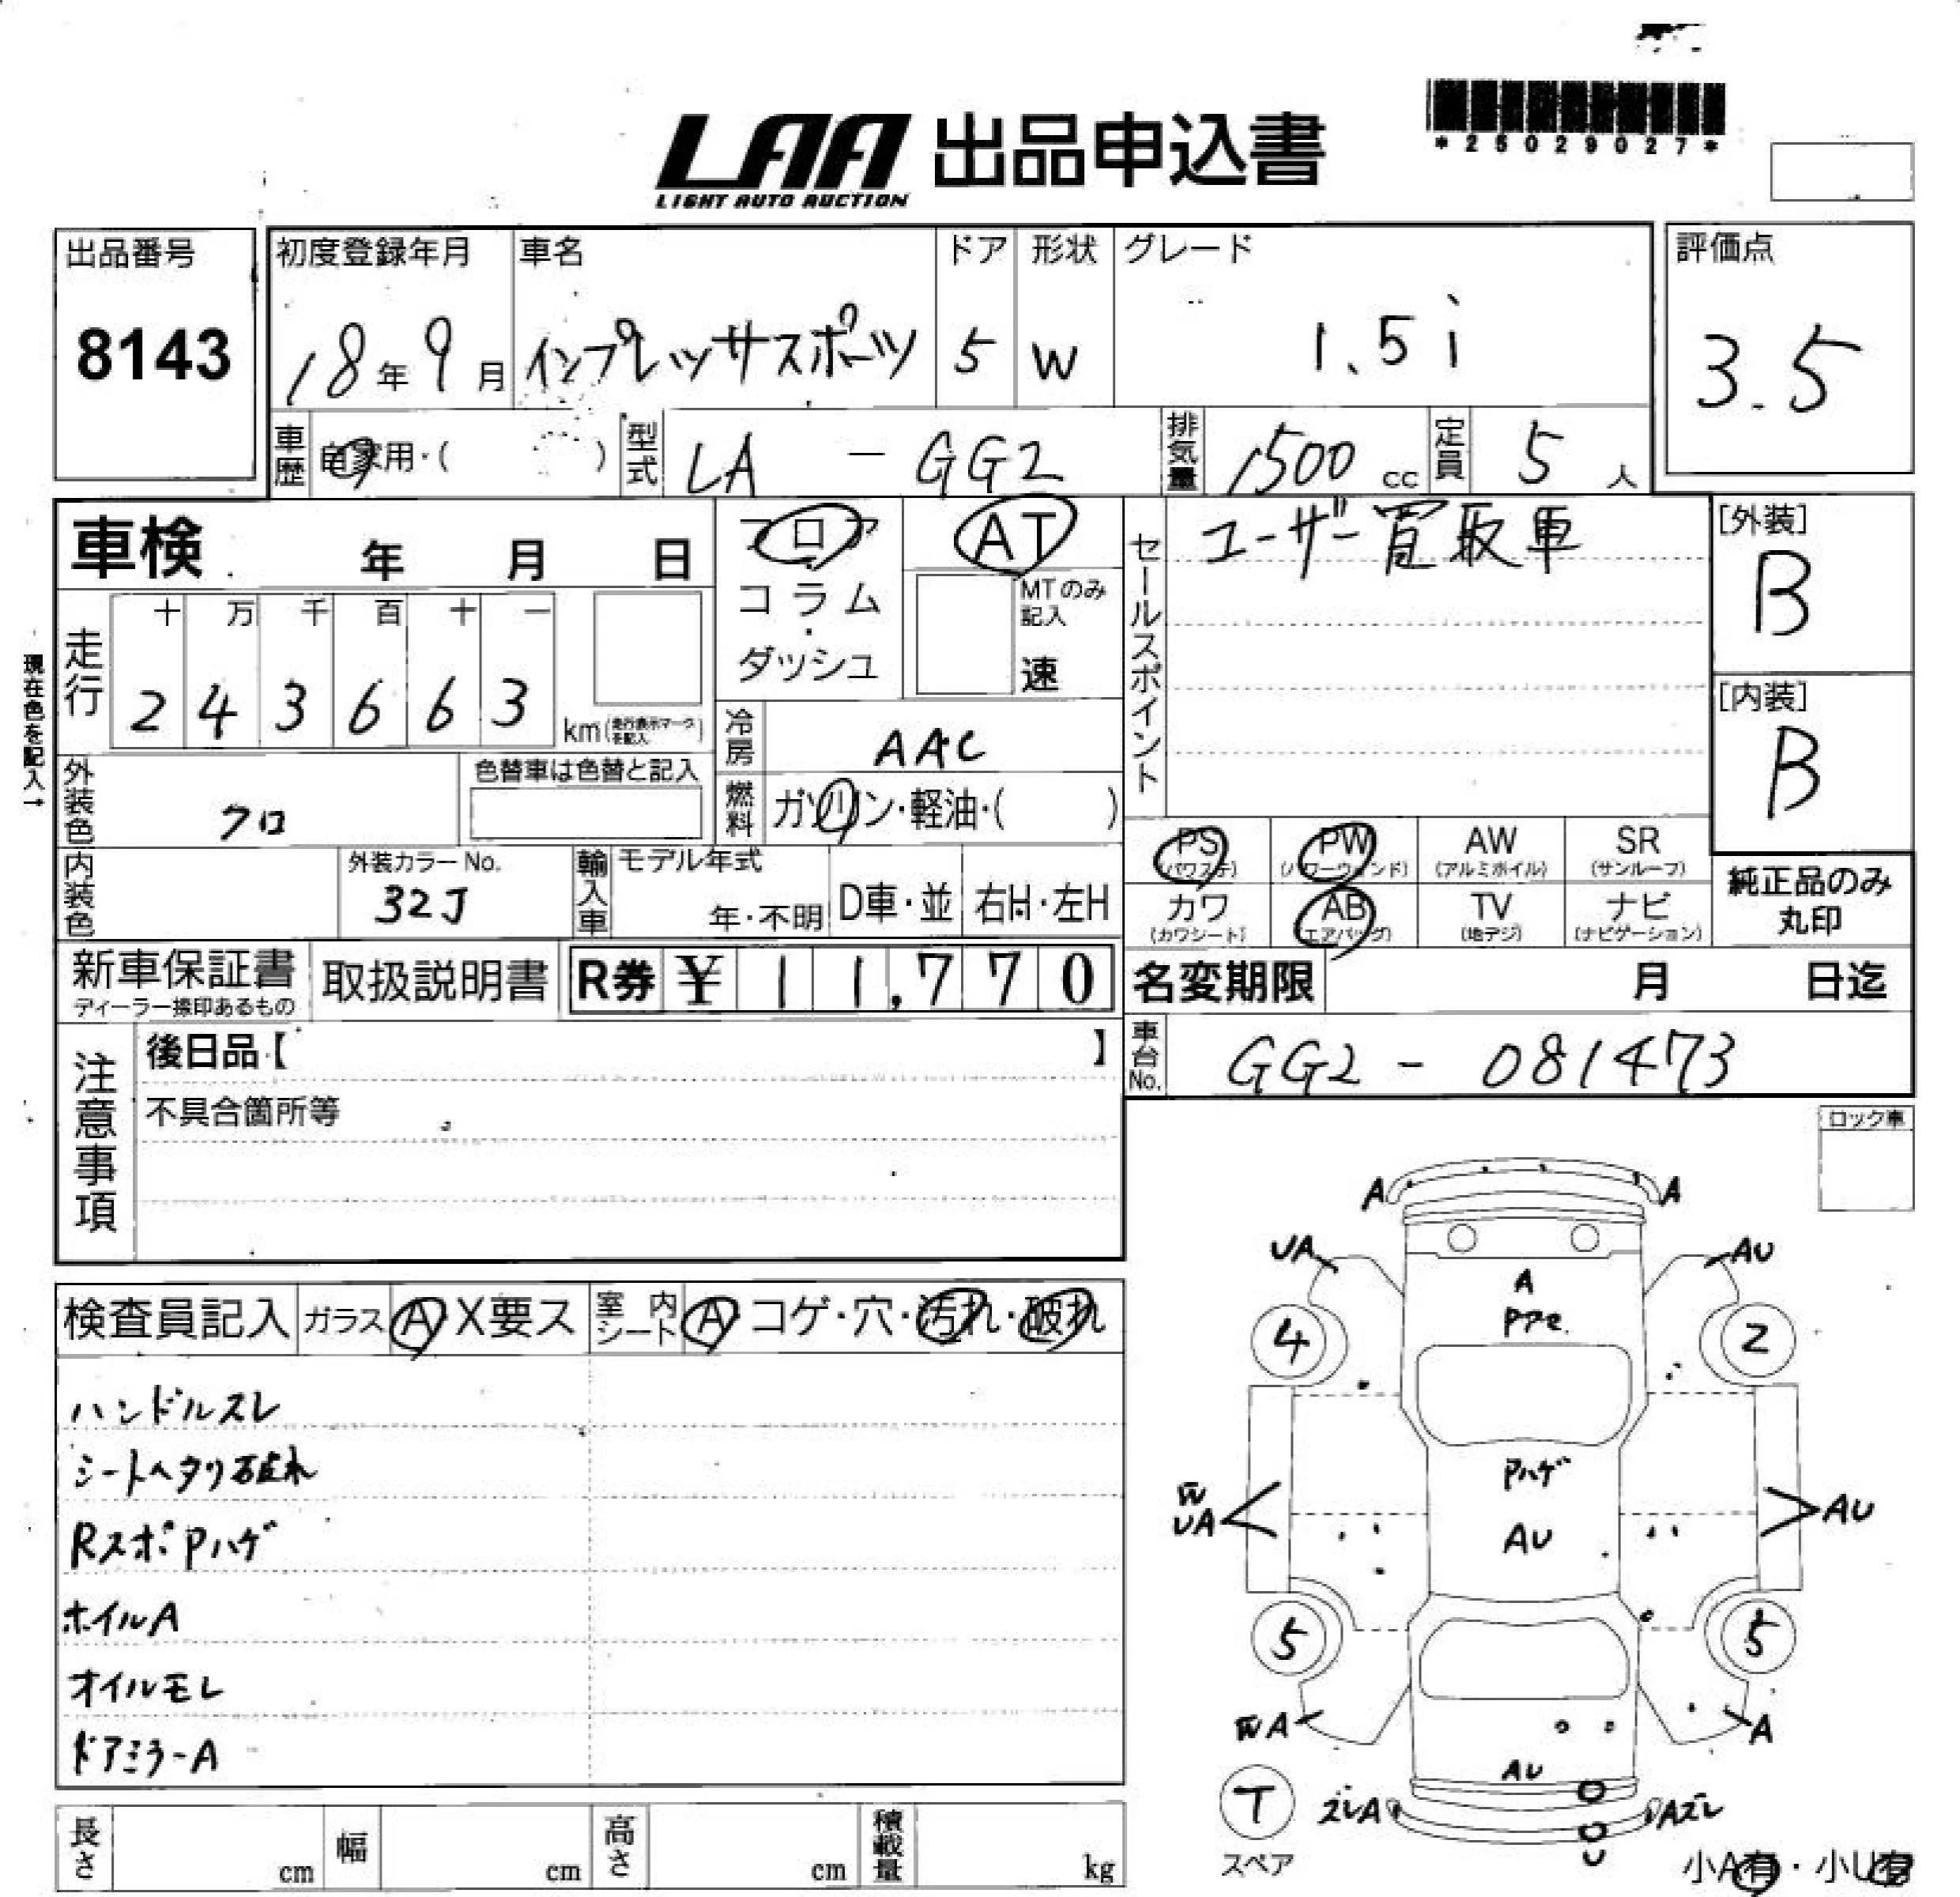 LAA 出品申込書
LIGHT AUTO AUCTION
*25029027*
出品番号
8143
初度登録年月
18年9月
車名
インプレッサスポーツ
ドア
5
形状
W
グレード
1.5i
評価点
3.5
車歴
自家用・( )
型式
LA - GG2
排気量
1500 cc
定員
5 人
車検 年 月 日
走行
十 万 千 百 十 一
2 4 3 6 6 3
km(走行表示マークを記入)
現在色を記入→
フロア
コラム
・
ダッシュ
AT
MTのみ
記入
速
冷房
AAC
燃料
ガソリン・軽油・( )
セールスポイント
ユーザー買取車
[外装]
B
[内装]
B
外装色
クロ
色替車は色替と記入
内装色
外装カラーNo.
32J
輸入車
モデル年式
年・不明
D車・並
右H・左H
PS
(パワステ)
PW
(パワーウィンド)
AW
(アルミホイル)
SR
(サンルーフ)
カワ
(カワシート)
AB
(エアバッグ)
TV
(地デジ)
ナビ
(ナビゲーション)
純正品のみ
丸印
新車保証書
ディーラー捺印あるもの
取扱説明書
R券 ¥ 11,770
名変期限 月 日迄
車台No.
GG2 - 081473
注意事項
後日品【 】
不具合箇所等
ロック車
検査員記入
ガラス A X要ス
室内シート A コゲ・穴・汚れ・破れ
ハンドルスレ
シートヘタリ破れ
RスポPハゲ
ホイルA
オイルモレ
ドアミラーA
A A
UA AU
A
4 2
Pハゲ
W
UA AU
AU
5 5
WA A
AU
T ズレA Aズレ
U
スペア
小A有・小U有
長さ cm
幅 cm
高さ cm
積載量 kg